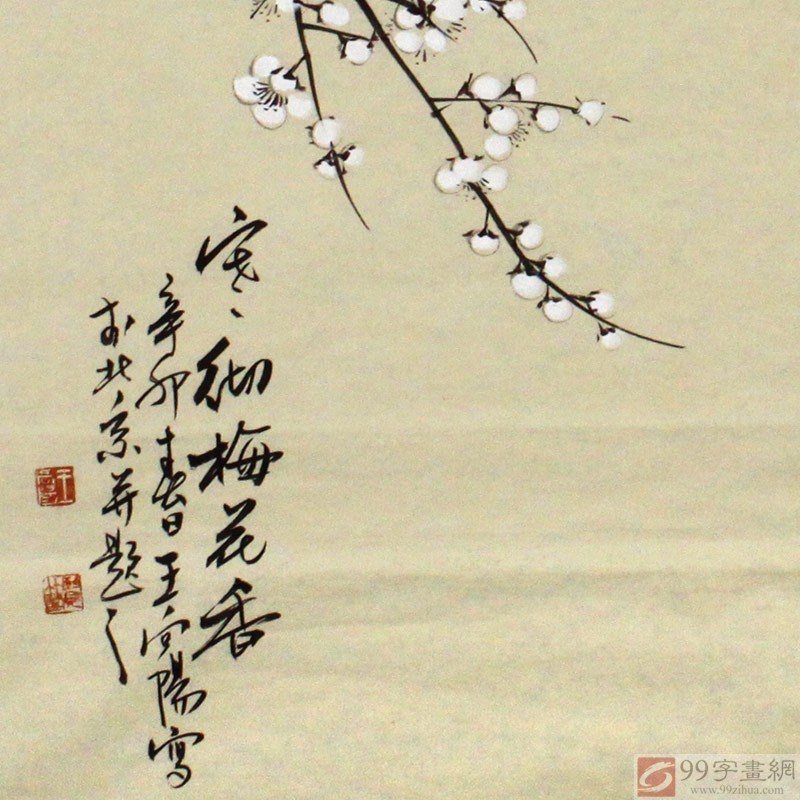 寒彻梅花香
辛卯春日王向陽寫
於北京并题之
99字畫網
www.99zihua.com